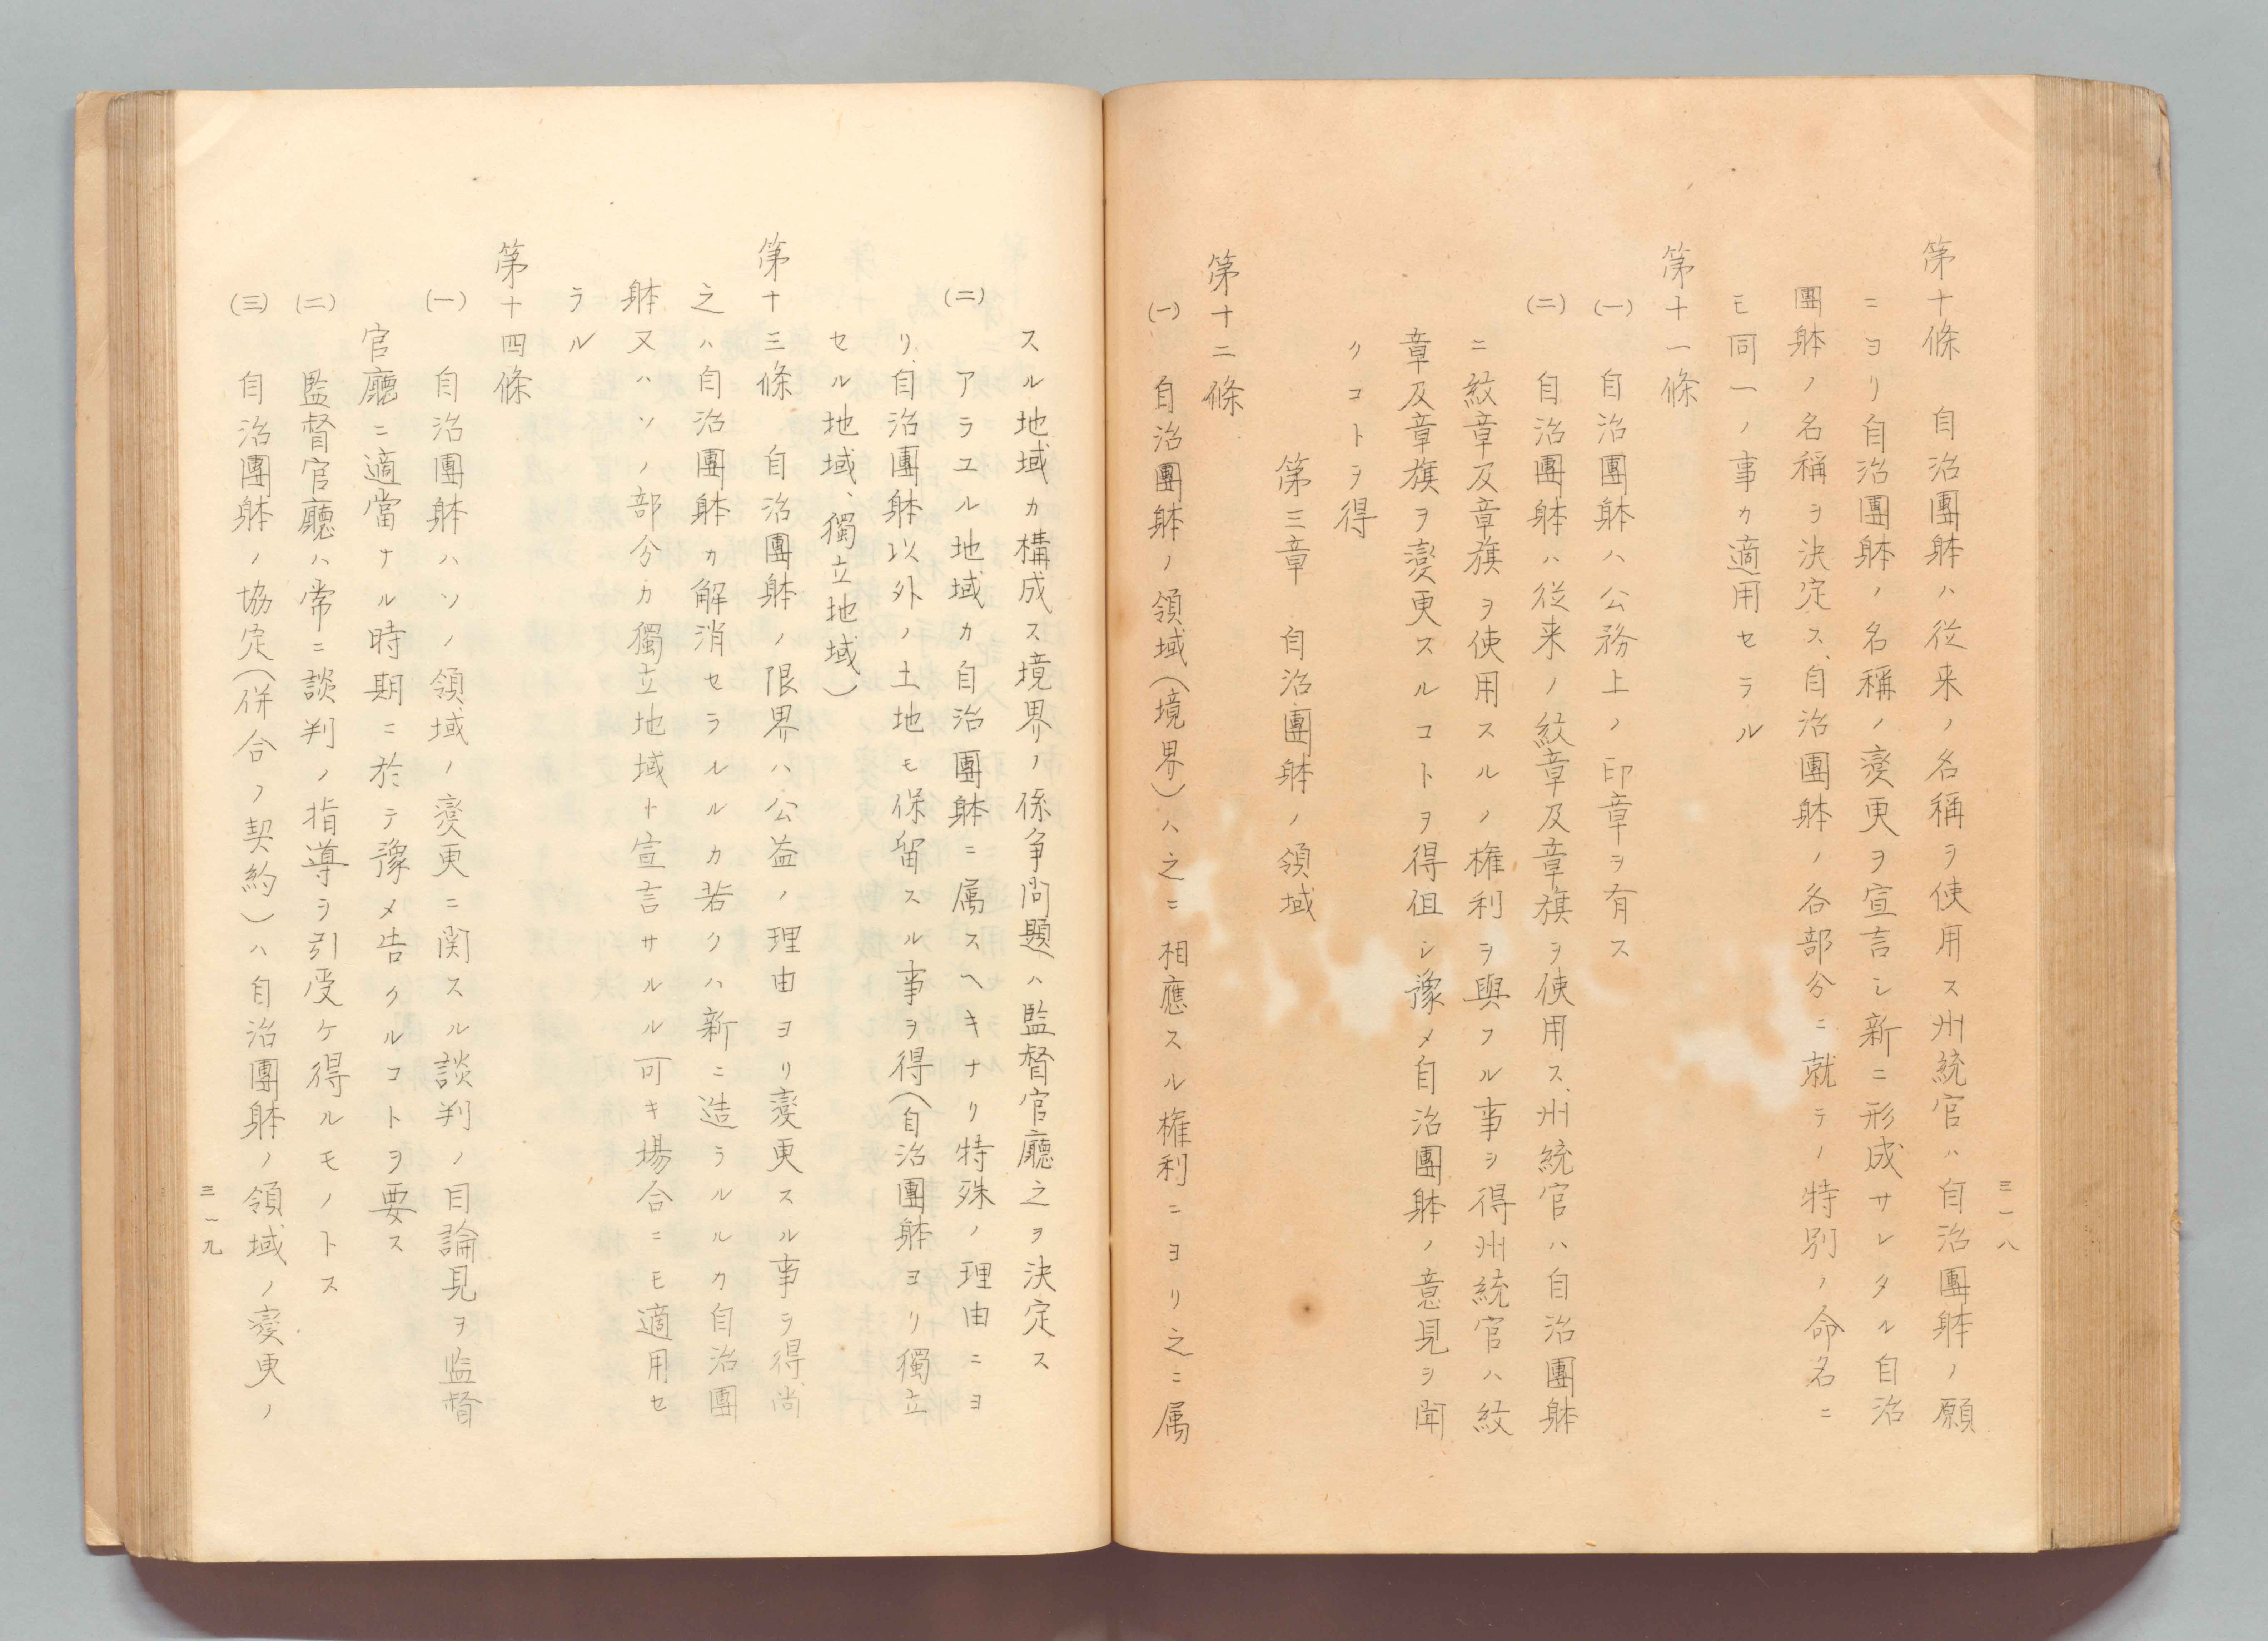 三一八
第十條　自治團躰ハ従来ノ名稱ヲ使用ス州統官ハ自治團躰ノ願
ニヨリ自治團躰ノ名稱ノ変更ヲ宣言シ新ニ形成サレタル自治
團躰ノ名稱ヲ決定ス、自治團躰ノ各部分ニ就テノ特別ノ命名ニ
モ同一ノ事カ適用セラル
第十一條
(一)　自治團躰ハ公務上ノ印章ヲ有ス
(二)　自治團躰ハ従来ノ紋章及章旗ヲ使用ス、州統官ハ自治團躰
ニ紋章及章旗ヲ使用スルノ権利ヲ與フル事ヲ得州統官ハ紋
章及章旗ヲ変更スルコトヲ得但シ豫メ自治團躰ノ意見ヲ聞
クコトヲ得
第三章　自治團躰ノ領域
第十二條
(一)　自治團躰ノ領域(境界)ハ之ニ相應スル権利ニヨリ之ニ属
スル地域カ構成ス境界ノ係争問題ハ監督官廳之ヲ決定ス
(二)　アラユル地域カ自治團躰ニ属スヘキナリ特殊ノ理由ニヨ
リ、自治團躰以外ノ土地モ保留スル事ヲ得(自治團躰ヨリ獨立
セル地域、獨立地域)
第十三條　自治團躰ノ限界ハ公益ノ理由ヨリ変更スル事ヲ得、尚
之ハ自治團躰カ解消セラルルカ若クハ新ニ造ラルルカ自治團
躰又ハソノ部分カ獨立地域ト宣言サルル可キ場合ニモ適用セ
ラル
第十四條
(一)　自治團躰ハソノ領域ノ変更ニ関スル談判ノ目論見ヲ監督
官廳ニ適當ナル時期ニ於テ豫メ告クルコトヲ要ス
(二)　監督官廳ハ常ニ談判ノ指導ヲ引受ケ得ルモノトス
(三)　自治團躰ノ協定(併合ノ契約)ハ自治團躰ノ領域ノ変更ノ
三一九